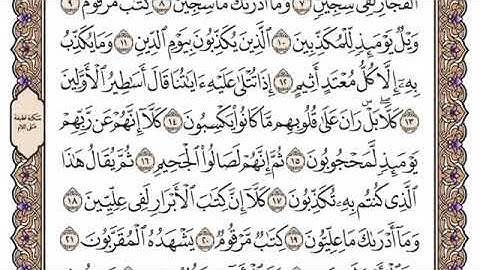 الفجار لفى سجين ٧ وما أدرىك ما سجين ٨ كتب مرقوم ٩
ويل يومئذ للمكذبين ١٠ الذين يكذبون بيوم الدين ١١ وما يكذب
به إلا كل معتد أثيم ١٢ إذا تتلى عليه ءايتنا قال أسطير الأولين
١٣ كلا بل ران على قلوبهم ما كانوا يكسبون ١٤ كلا إنهم عن ربهم
يومئذ لمحجوبون ١٥ ثم إنهم لصالوا الجحيم ١٦ ثم يقال هذا
الذى كنتم به تكذبون ١٧ كلا إن كتب الأبرار لفى عليين ١٨
وما أدرىك ما عليون ١٩ كتب مرقوم ٢٠ يشهده المقربون ٢١
سكتة لطيفة
على اللام